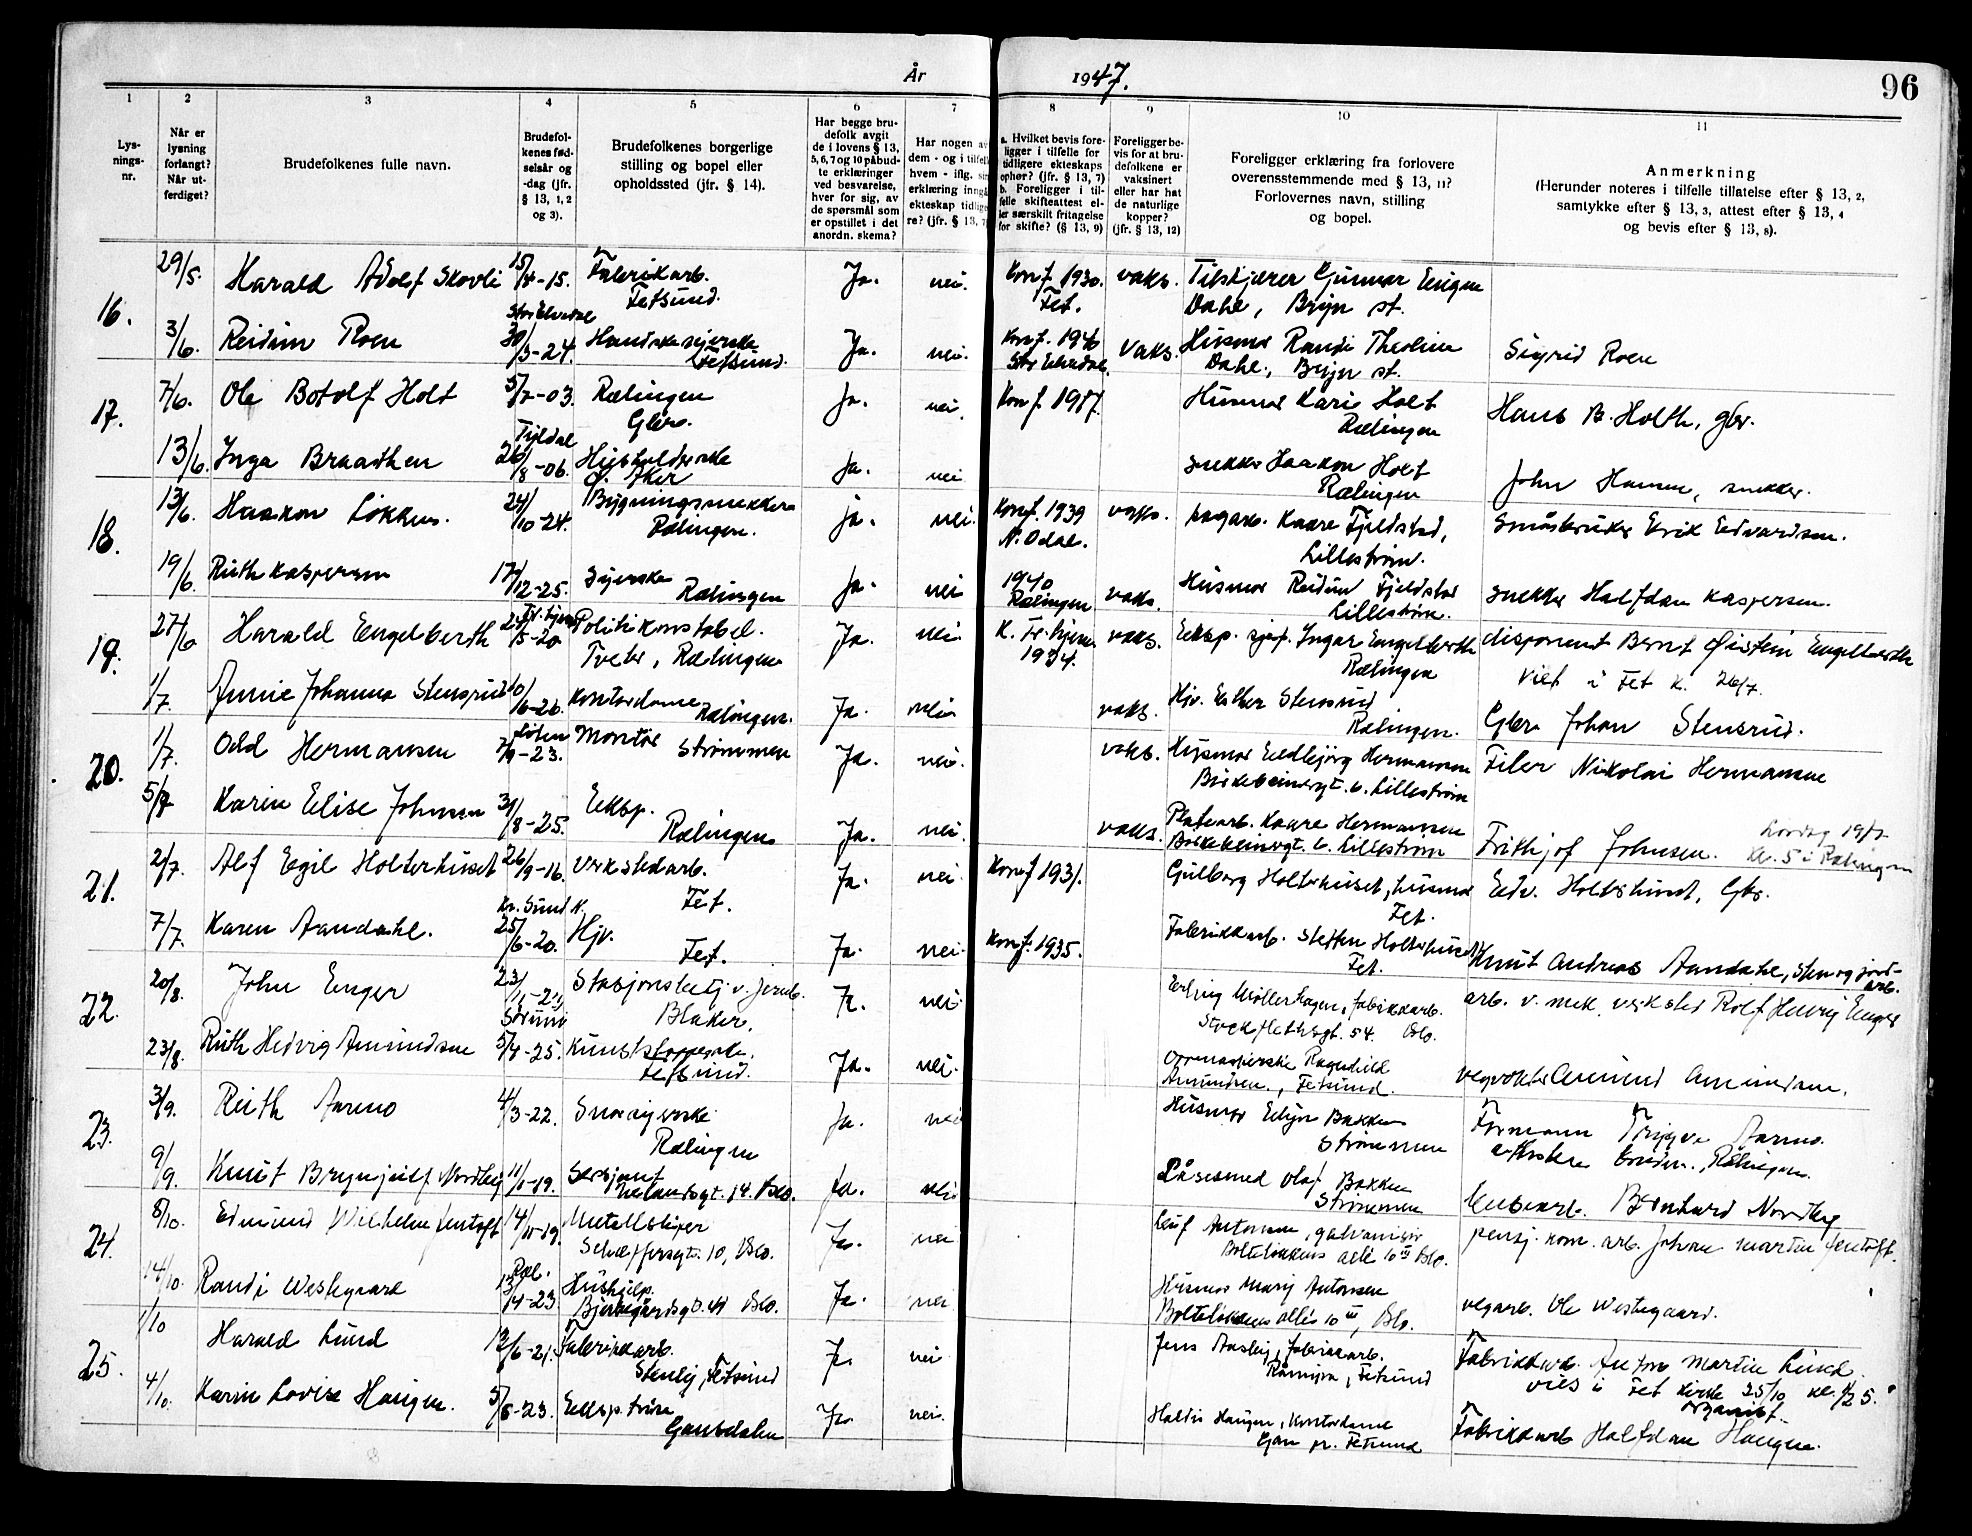 År 1947.
96
1 2 3 4 5 6 7 8 9 10 11
Lys-
nings-
nr.
Når er
lysning
forlangt?
Når ut-
ferdiget?
Brudefolkenes fulle navn.
Brudefol-
kenes fød-
selsår og
-dag (jfr.
§ 13, 1, 2
og 3).
Brudefolkenes borgerlige
stilling og bopel eller
opholdssted (jfr. § 14).
Har begge bru-
defolk avgit
de i lovens § 13,
5, 6, 7 og 10 påbud-
te erklæringer
ved besvarelse,
hver for sig, av
de spørsmål som
er opstillet i det
anordn. skema?
Har nogen av
dem - og i tilfel
hvem - iflg. sin
erklæring inngå
ekteskap tidlige
re? (jfr. § 13, 7
a. Hvilket bevis fore-
ligger i tilfelle for
tidligere ekteskaps
ophør? (jfr. § 13, 7)
b. Foreligger i til-
felle skifteattest el-
ler særskilt fritagelse
for skifte? (§ 13, 9)
Foreligger be-
vis for at bru-
defolkene er
vaksinert
eller har hat
de naturlige
kopper?
(jfr. § 13, 12)
Foreligger erklæring fra forlovere
overensstemmende med § 13, 11?
Forlovernes navn, stilling
og bopel.
Anmerkning
(Herunder noteres i tilfelle tillatelse efter § 13, 2,
samtykke efter § 13, 3, attest efter § 13, 4
og bevis efter § 13, 8).
16.
29/5. Harald Adolf Skovli 15/8-15. Fabrikarb. Ja. nei. Konf. 1930. vaks. Tilskjærer Gunnar Engen
Fetsund. Fet. Dahl, Bryn st.
Stor Elvedal
3/6. Reidun Roen 30/3-24. Handskesyerske Ja. nei. Konf. 1940 vaks. Husmor Randi Theoline Sigrid Roen
Fetsund. Stor Elvedal. Dahl, Bryn st.
17.
7/6. Ole Botolf Holt 5/2-03. Rælingen Ja. nei. Konf. 1917. Husmor Kari Holt Hans B. Holth, gbr.
Gbr. Rælingen
Tyldal
13/6. Inga Braathen 26/8-06. Husholderske Ja. nei snekker Haakon Holt John Hansen, snekker.
Ø. Aker Rælingen
18.
13/6. Haakon Løkken. 24/10-24. Bygningssnekker ja. nei. Konf. 1939 vaks. Kaare Fjeldstad, Småbruker Erik Edvardsen.
Rælingen. N. Odal. Lillestrøm.
19/6 Ruth Kaspersen 17/12-25. Syerske Ja. nei 1940 vaks. Husmor Reidun Fjeldstad snekker Halfdan Kaspersen.
Rælingen Rælingen Lillestrøm.
19.
27/6 Harald Engelberth 5-20 Politikonstabel. Ja. nei K. 1934. vaks. Eksp. sjef. Yngar Engelberth disponent Bernt Øistein Engelberth
Tveter, Rælingen Rælingen Viet i Fet k. 26/7.
1/7. Annie Johanna Stensrud 6-26. Kontordame Ja. nei vaks. Hjv. Esther Stensrud Gbr. Johan Stensrud.
Rælingen. Rælingen.
20.
Løten
1/7. Odd Hermansen 9-23. Montør Strømmen Ja. nei. vaks. Husmor Hermansen Filer Nikolai Hermansen
Birkebeinergt. 6. Lillestrøm
5/7 Karin Elise Johnsen 31/8-25. Eksp. Ja. nei. vaks. Platearb. Kaare Hermansen Frithjof Johnsen. Lørdag 19/7
Rælingen Birkebeinergt. 6. Lillestrøm kl. 5 i Rælingen
21.
2/7. Alf Egil Holterhuset 26/9-16. Verkstedarb. Ja. nei Konf 1931. Gulborg Holterhuset, husmor Edv. Holterhuset, Gbr.
Fet. Fet.
Kr. Sund N.
7/7. Karen Aandahl. 25/6-20. Hjv. Ja. nei. Konf. 1935. Fabrikkarb. Steffen Holterhuset Knut Andreas Aandahl, sten og jord-
Fet. Fet. arb.
22.
20/8. John Enger 23/11-21 Stasjonsbetj v. jernb. Ja. nei Erling Møllerhagen, fabrikkarb. arb. v. mek. verksted Rolf Henry Enger
Sørum Blaker. Stockflethsgt. 54. Oslo.
23/8. Ruth Hedvig Amundsen 5/4-25. Kunststopperske. Ja. nei. Ragnhild vegvokter Amund Amundsen.
Fetsund. Amundsen., Fetsund.
23.
3/9. Ruth Aarmo 4/3-22. Snorsyerske Ja. nei Husmor Edyn Bakken Formann Trygve Aarmo.
Rælingen Strømmen Rælingen.
9/9. Knut Brynjulf Nordby 11/1-19. Sersjant Ja. nei Låsesmed Olaf Bakken Bernhard Nordby
14. Oslo. Strømmen
24.
8/10. Edmund Wilhelm Jentoft 14/11-19. Metallsliper Ja. nei Leif Antonsen, galvanisør pensj. kom. arb. Johan Martin Jentoft.
Schæffersgt. 10, Oslo. Bolteløkkens allé 10 III Oslo.
Ræl.
14/10. Randi Westegaard 13/4-23 Hushjelp. Ja. nei Husmor Mary Antonsen vegarb. Ole Westegaard.
Bjerregårdsgt. Oslo. Bolteløkkens allé 10 III, Oslo.
25.
1/10 Harald Lund 12/6-21. Fabrikkarb. Ja. nei Jens Aasby, fabrikkarb. Fabrikkarb. Anton Martin Lund.
Stenby, Fetsund Fetsund viet i Fet kirke 25/10 kl.
4/10. Karin Lovise Haugen. 5/8-23. Eksp. trise Ja. nei. Haldis Haugen, kontordame Fabrikkarb Halfdan Haugen.
Gansdalen Gan pr. Fetsund